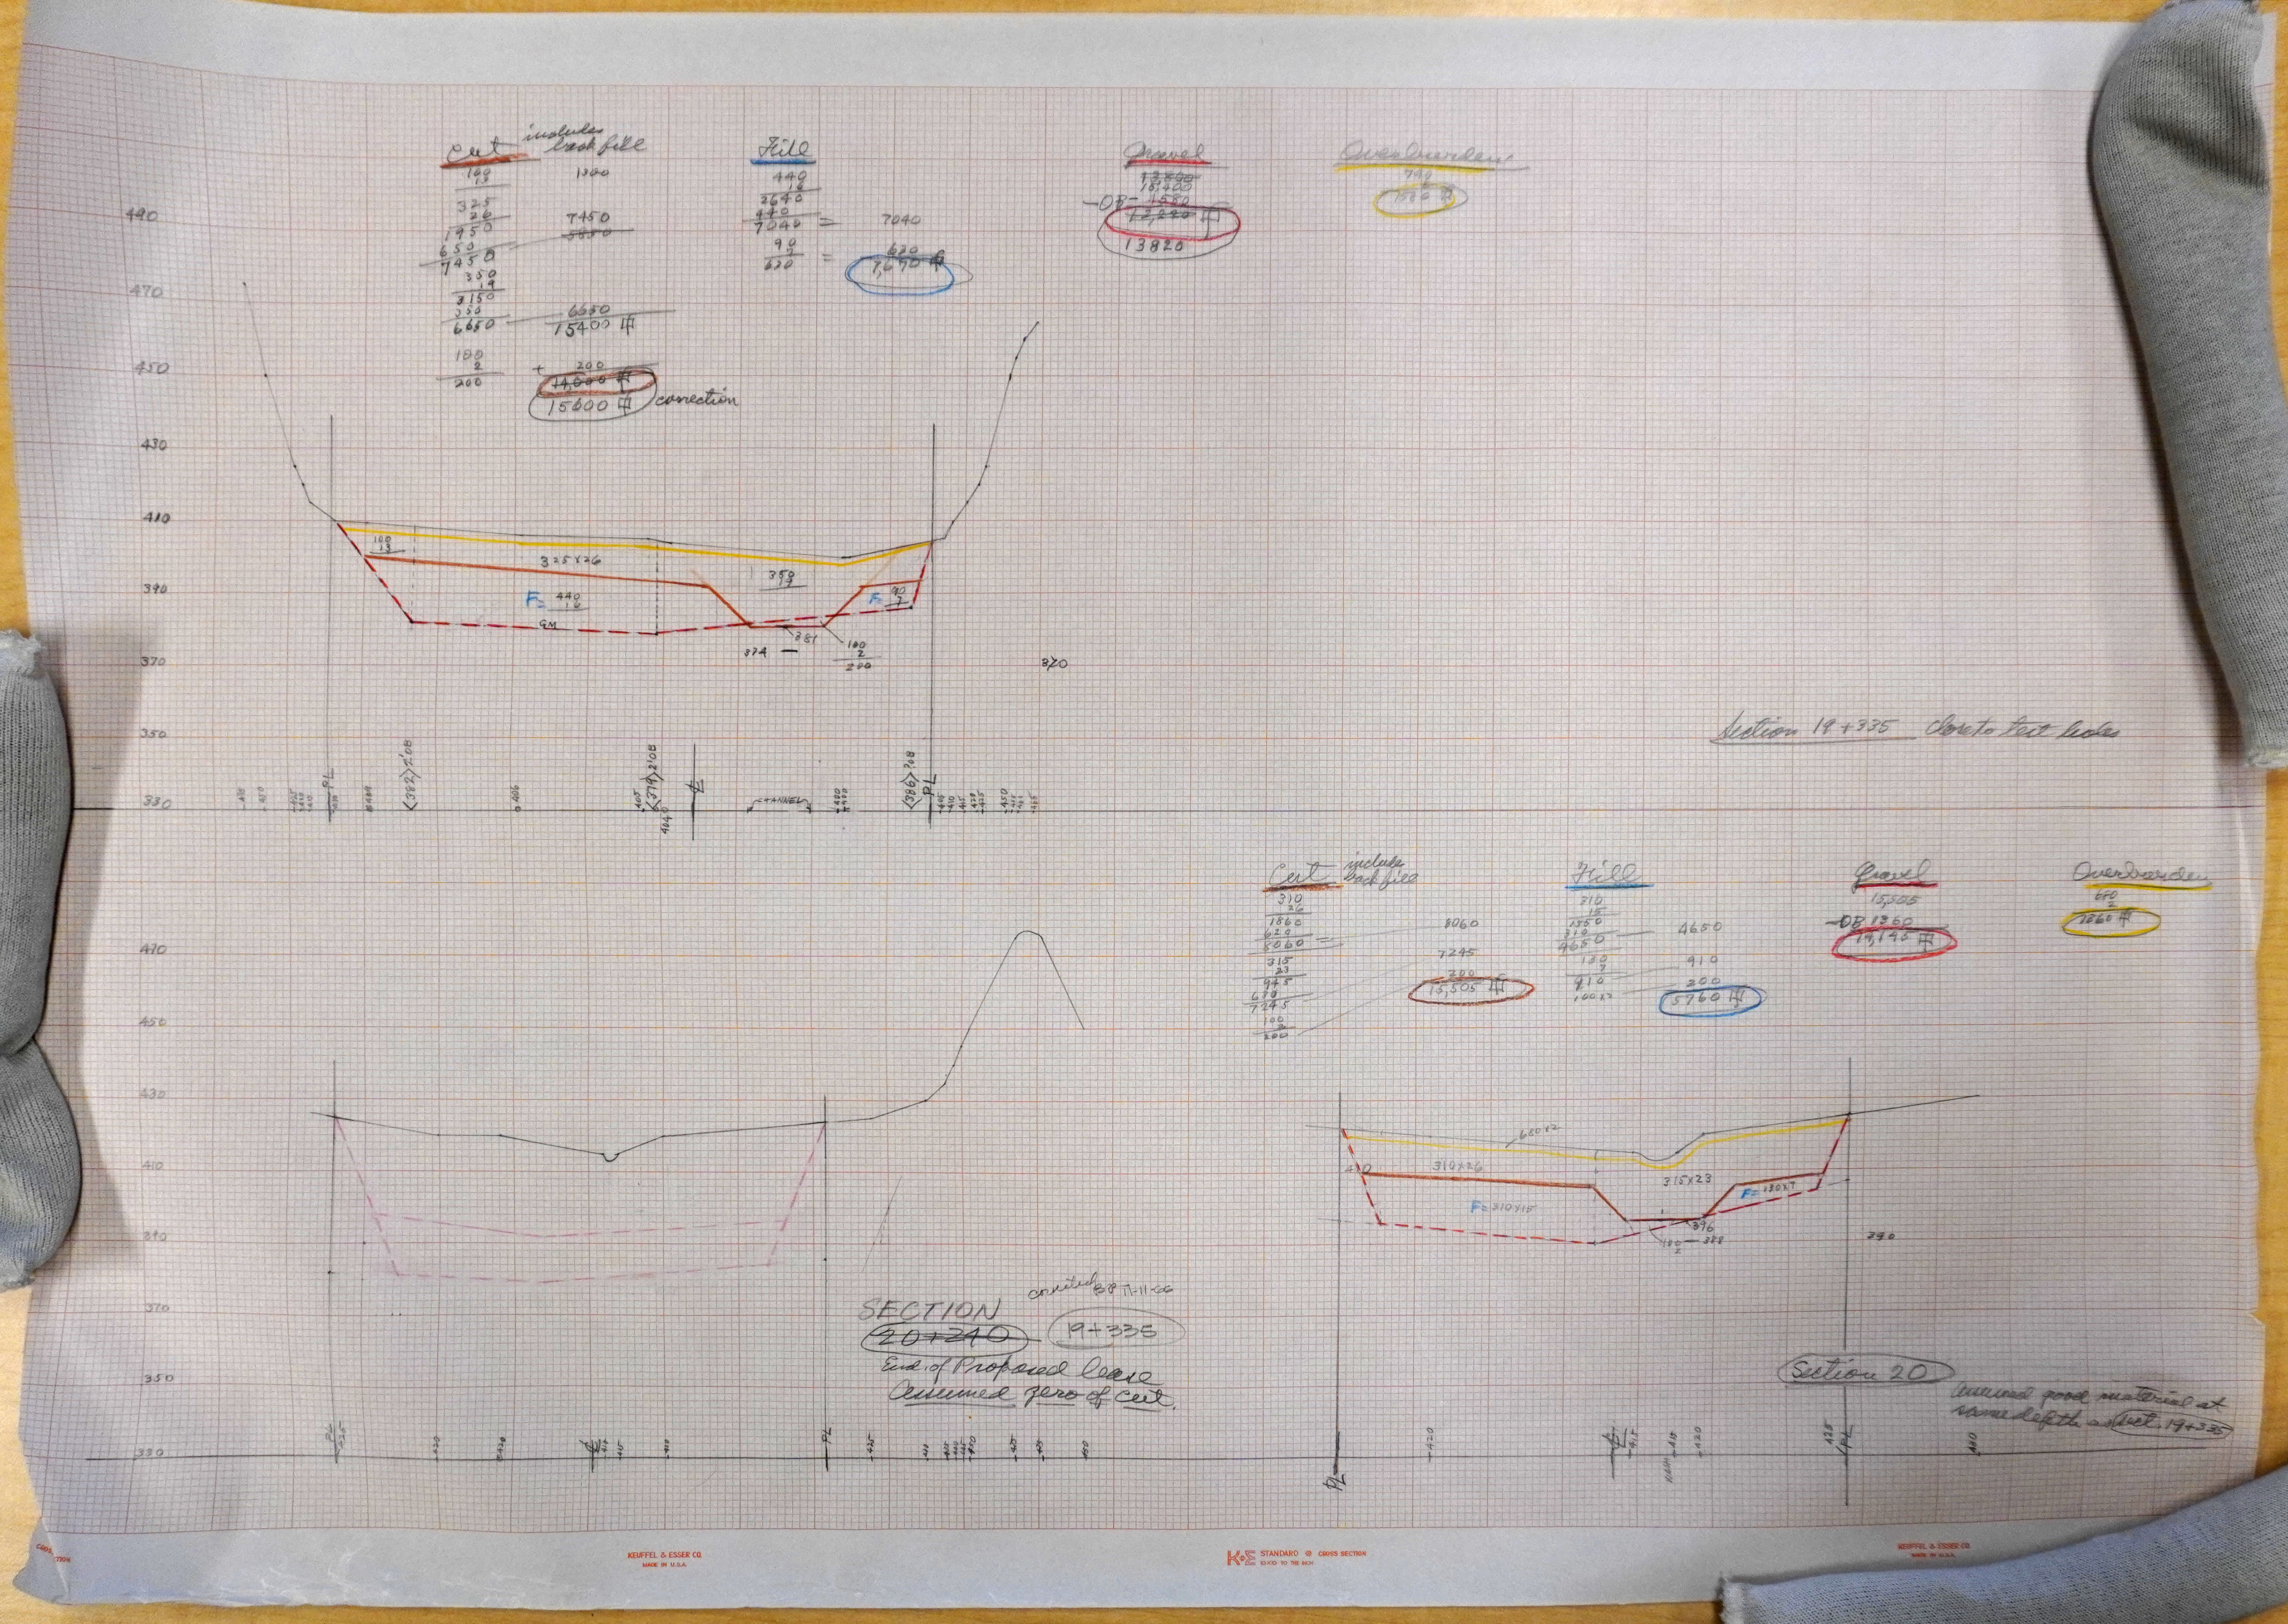 Cut includes back fill
100
13
1300
325
26
1950
650
7450
7450
5850
350
19
3150
350
6650
6650
15400
100
2
200
+ 200
14,000
15600 correction
Fill
440
16
2640
440
7040 = 7040
90
7
630 = 630
7,670
Gravel
13800
15,400
-OB- 1580
13820
Overburden
790
1580
490
470
450
430
410
390
370
350
330
100
13
325x26
350
19
F= 440
16
F= 90
7
GM
381
374 —
100
2
200
370
PL
<382>2'OB
406
405
<379>2'OB
404
CHANNEL
<386>2'OB
PL
Section 19+335 Close to test holes
Cut include back fill
310
26
1860
620
8060
8060
315
23
945
630
7245
7245
100
2
200
200
15,505
Fill
310
15
1550
310
4650
4650
130
7
910
910
100x2
200
5760
Gravel
15,505
-OB 1360
14,145
Overburden
680
2
1360
470
450
430
410
390
370
350
330
SECTION
20+240
19+335
corrected 11-11-66
End of Proposed lease
Assumed zero of cut.
PL
425
420
420
415
PL
425
680x2
410
310x26
315x23
F=310x15
F= 130x7
396
100
2
— 388
390
Section 20
Assumed good material at
same depth as sect. 19+335
PL
420
415
415
420
425
PL
KEUFFEL & ESSER CO.
MADE IN U.S.A.
K+E STANDARD ® CROSS SECTION
10 X 10 TO THE INCH
KEUFFEL & ESSER CO.
MADE IN U.S.A.